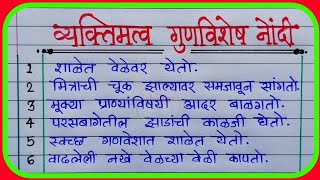 व्यक्तिमत्व गुणविशेष नोंदी
1 शाळेत वेळेवर येतो.
2 मित्राची चूक झाल्यावर समजावून सांगतो.
3 मूक्या प्राण्यांविषयी आदर बाळगतो.
4 परसबागेतील झाडांची काळजी घेतो.
5 स्वच्छ गणवेशात शाळेत येतो.
6 वाढलेली नखे वेळच्या वेळी कापतो.